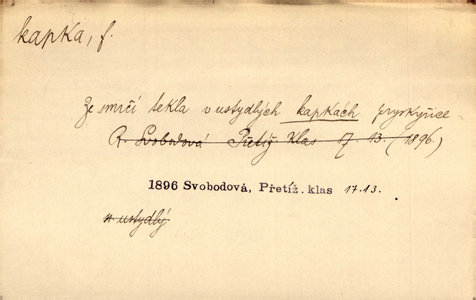 kapka, f.
Ze smrčí tekla v ustydlých kapkách pryskyřice
R. Svobodová Přetíž. Klas 17. 13. (1896.)
1896 Svobodová, Přetíž. klas 17.13.
n. ustydlý